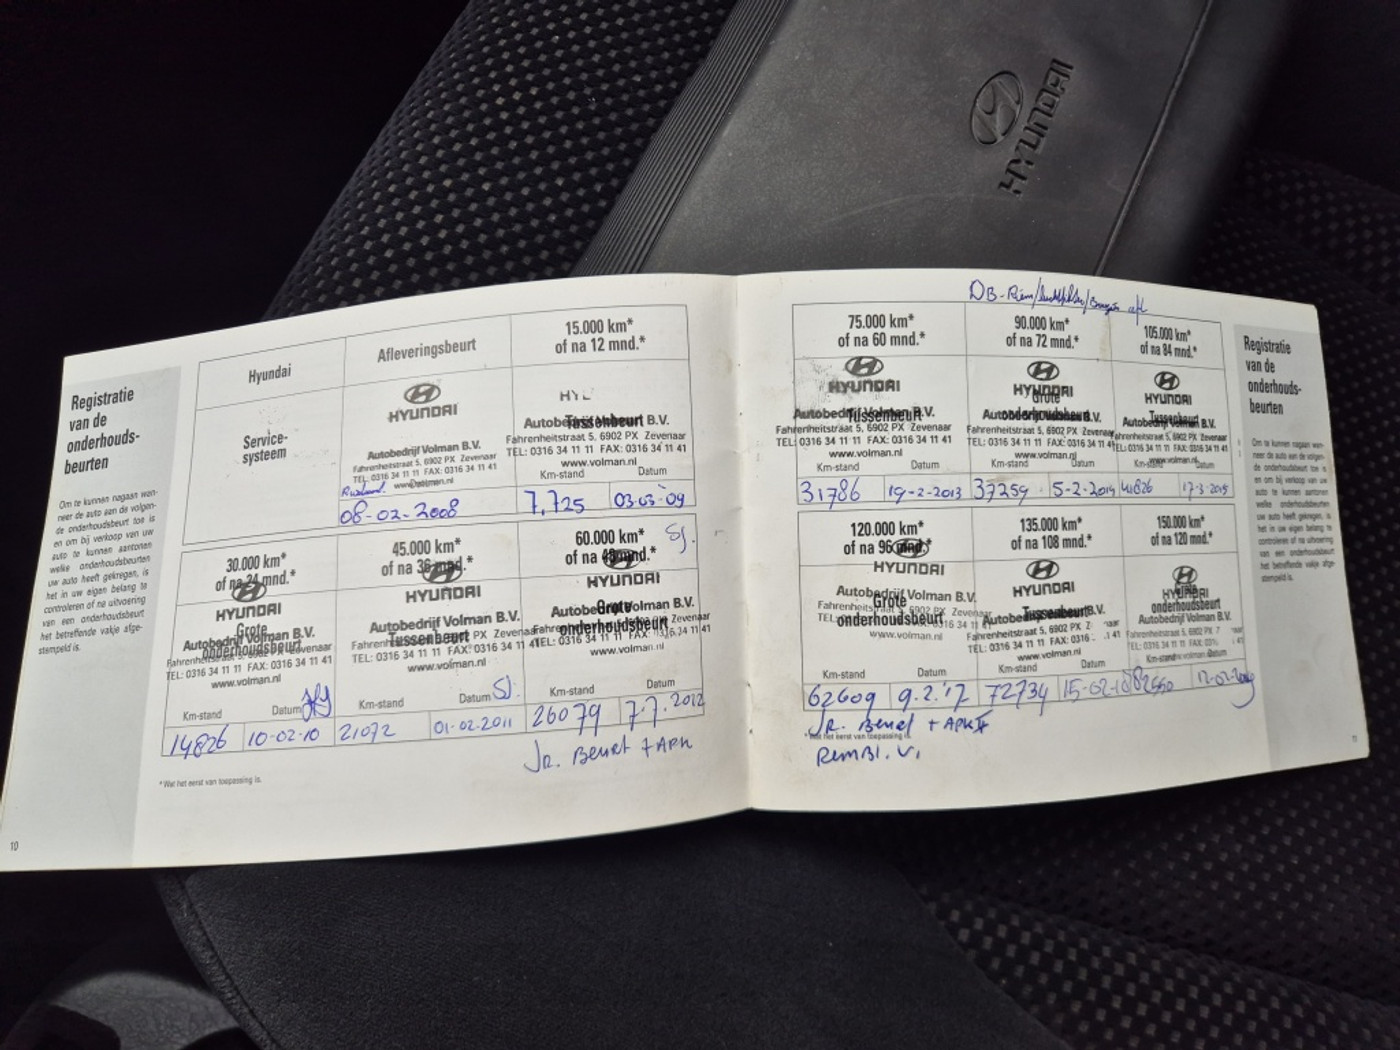 HYUNDAI
Registratie
van de
onderhouds-
beurten
Om te kunnen nagaan wan-
neer de auto aan de volgen-
de onderhoudsbeurt toe is
en om bij verkoop van uw
auto te kunnen aantonen
welke onderhoudsbeurten
uw auto heeft gekregen, is
het in uw eigen belang te
controleren of na uitvoering
van een onderhoudsbeurt
het betreffende vakje afge-
stempeld is.
10
Hyundai
Service-
systeem
Afleveringsbeurt
HYUNDAI
Autobedrijf Volman B.V.
Fahrenheitstraat 5, 6902 PX Zevenaar
TEL: 0316 34 11 11 FAX: 0316 34 11 41
www.volman.nl
08-02-2008
15.000 km*
of na 12 mnd.*
Tussenbeurt
Autobedrijf Volman B.V.
Fahrenheitstraat 5, 6902 PX Zevenaar
TEL: 0316 34 11 11 FAX: 0316 34 11 41
www.volman.nl
Km-stand Datum
7.725 03-03-09
30.000 km*
of na 24 mnd.*
HYUNDAI
Grote
onderhoudsbeurt
Autobedrijf Volman B.V.
TEL: 0316 34 11 11 FAX: 0316 34 11 41
www.volman.nl
Km-stand Datum
14826 10-02-10
45.000 km*
of na 36 mnd.*
HYUNDAI
Tussenbeurt
Autobedrijf Volman B.V.
TEL: 0316 34 11 11 FAX: 0316 34 11 41
www.volman.nl
Km-stand Datum SJ.
21072 01-02-2011
60.000 km* SJ.
of na 48 mnd.*
HYUNDAI
Grote
onderhoudsbeurt
Autobedrijf Volman B.V.
TEL: 0316 34 11 11 FAX: 0316 34 11 41
www.volman.nl
Km-stand Datum
26079 7.7.2012
Jr. Beurt + APK
*Wat het eerst van toepassing is.
75.000 km*
of na 60 mnd.*
HYUNDAI
Tussenbeurt
Autobedrijf Volman B.V.
Fahrenheitstraat 5, 6902 PX Zevenaar
TEL: 0316 34 11 11 FAX: 0316 34 11 41
www.volman.nl
Km-stand Datum
31786 19-2-2013
90.000 km*
of na 72 mnd.*
HYUNDAI
Grote
onderhoudsbeurt
Fahrenheitstraat 5, 6902 PX Zevenaar
TEL: 0316 34 11 11 FAX: 0316 34 11 41
www.volman.nl
Km-stand Datum
37259 5-2-2014
105.000 km*
of na 84 mnd.*
HYUNDAI
Tussenbeurt
Fahrenheitstraat 5, 6902 PX Zevenaar
TEL: 0316 34 11 11 FAX: 0316 34 11 41
Km-stand Datum
41826 17-3-2015
120.000 km*
of na 96 mnd.*
HYUNDAI
Grote
onderhoudsbeurt
Autobedrijf Volman B.V.
www.volman.nl
Km-stand Datum
62609 9.2.'17
Jr. Beurt + APK
135.000 km*
of na 108 mnd.*
HYUNDAI
Tussenbeurt
Km-stand Datum
72734
150.000 km*
of na 120 mnd.*
HYUNDAI
Grote
onderhoudsbeurt
Km-stand Datum
Registratie
van de
onderhouds-
beurten
Om te kunnen nagaan wan-
neer de auto aan de volgen-
de onderhoudsbeurt toe is
en om bij verkoop van uw
auto te kunnen aantonen
welke onderhoudsbeurten
uw auto heeft gekregen, is
het in uw eigen belang te
controleren of na uitvoering
van een onderhoudsbeurt
het betreffende vakje afge-
stempeld is.
11